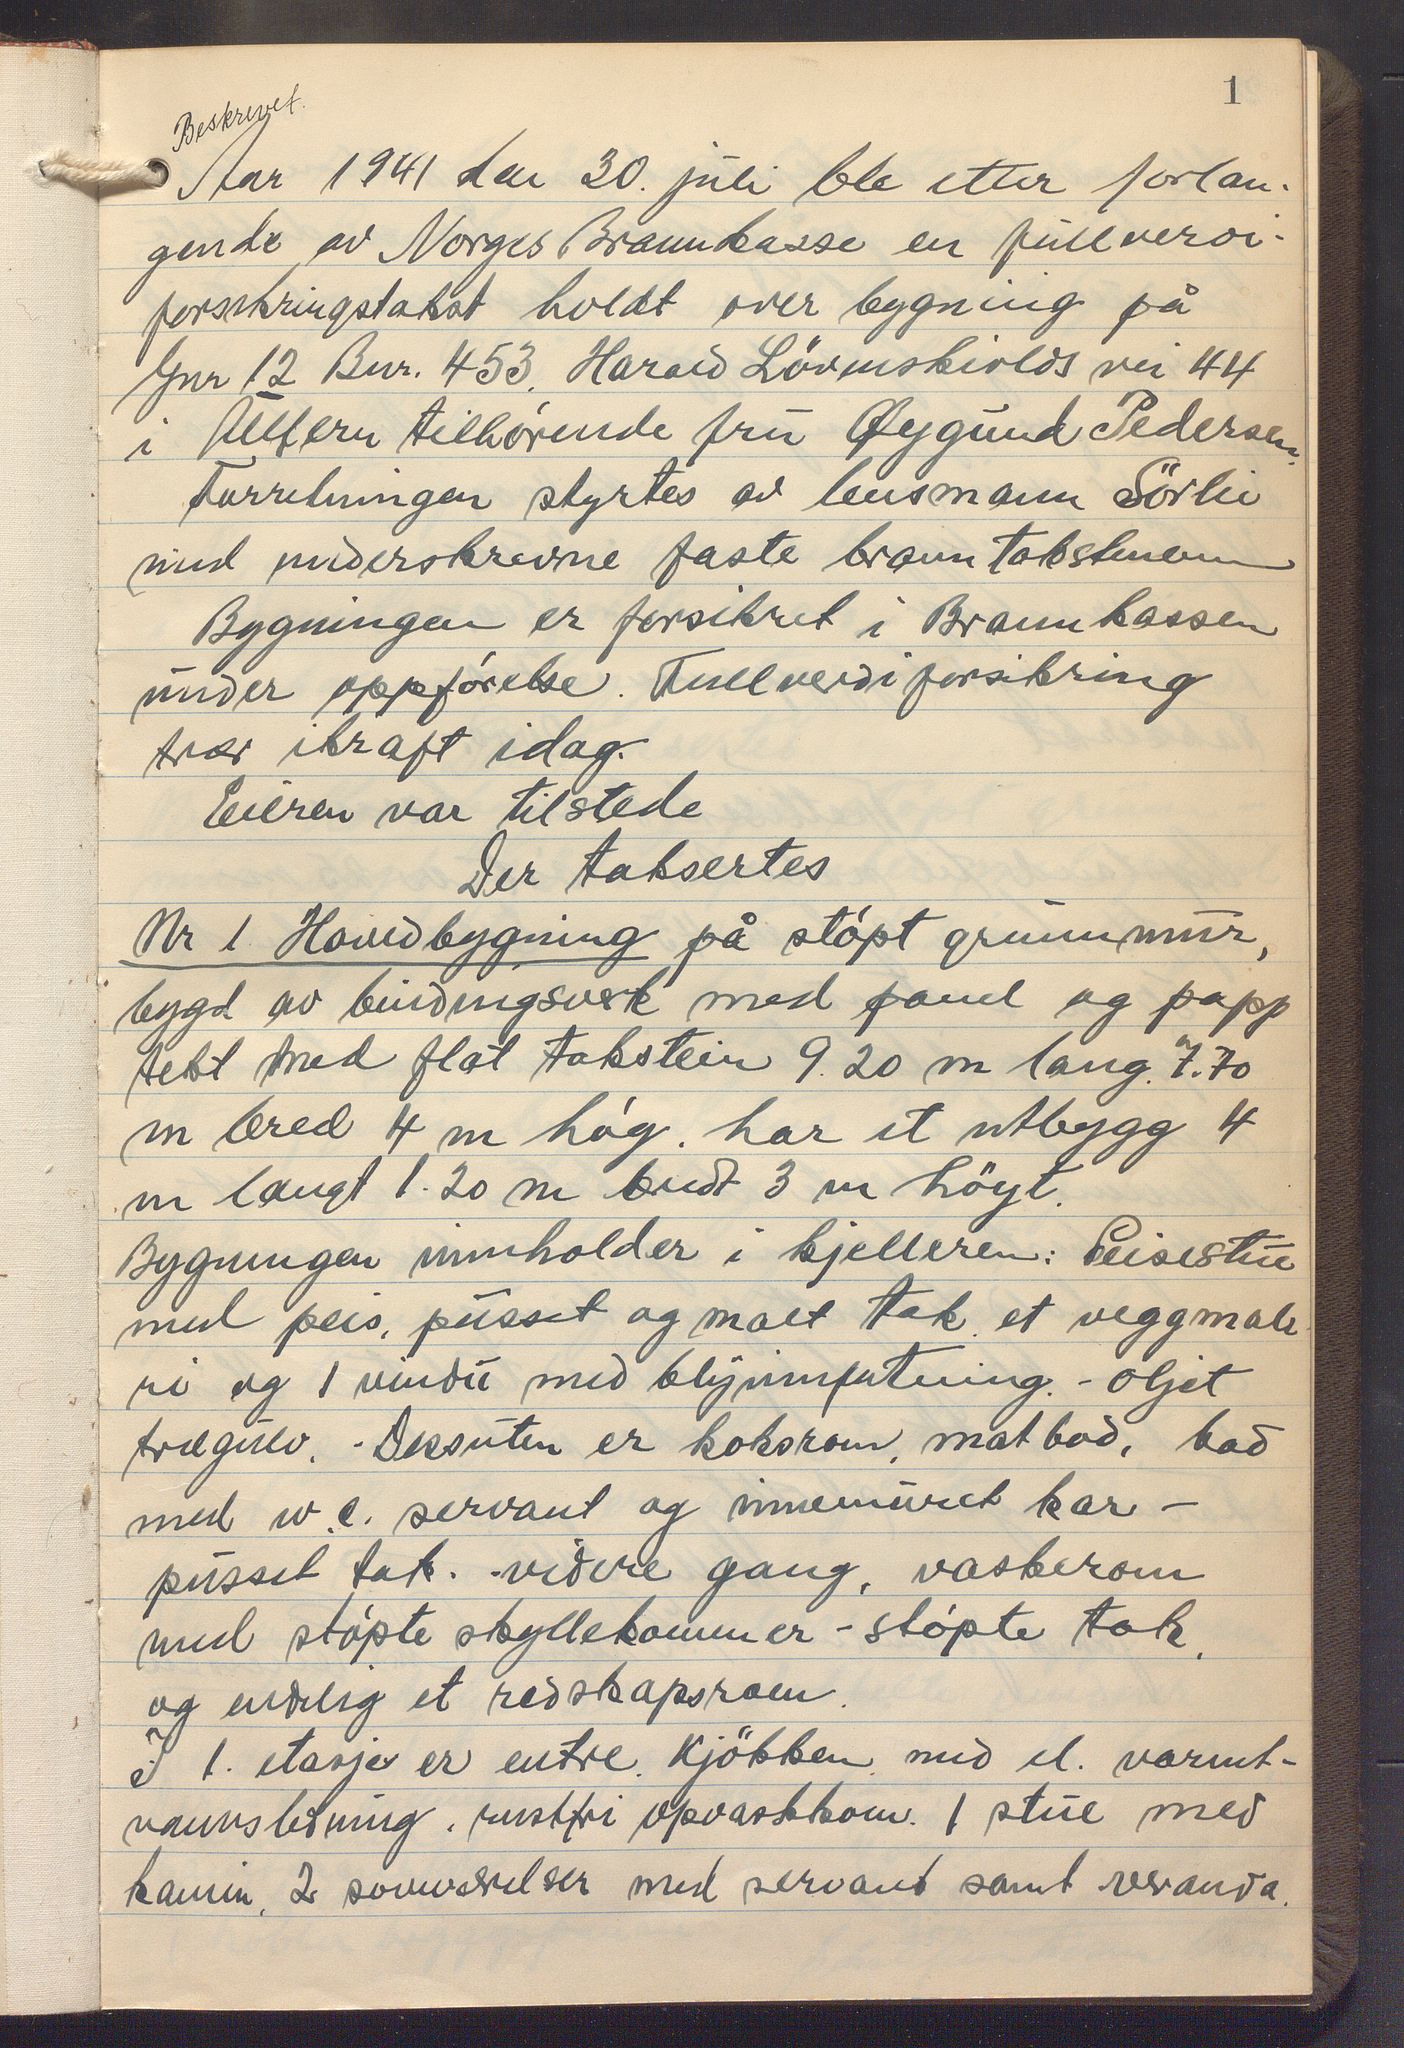 1
Beskrevet.
Aar 1941 den 30. juli ble etter forlan-
gende av Norges Brannkasse en fullverdi-
forsikringstakst holdt over bygning på
Gnr 12 Bnr. 453. Harald Lövenskiolds vei 44
i Ullern tilhórende fru Øygund Pedersen.
Forretningen styrtes av lensmann Sörlie
med underskrevne faste branntakstmenn
Bygningen er forsikret i Brannkassen
under oppfórelse. Fullverdiforsikring
trær ikraft idag.
Eieren var tilstede
Der taksertes
Nr 1 Hovedbygning på stópt grunnmur,
bygd av bindingsverk med panel og papp
tekt med flat takstein 9.20 m lang. 7.70
m bred 4 m hóg. har et utbygg 4
m langt 1.20 m bredt 3 m höyt.
Bygningen innholder i kjelleren: Peisestue
med peis, pusset og malt tak. et veggmale-
ri og 1 vindu med blyinnfatning. - oljet
tregulv. - Dessuten er koksrom, matbod, bad
med w.c. servant og innemuret kar -
pusset tak. - videre gang, vaskerom
med stópte skyllekommer - stópte tak,
og endelig et redskapsrom.
I 1. etasje er entre. Kjökken med el. varmt-
vannsledning. rustfri opvaskkom. 1 stue med
kamin, 2 soveværelser med servant samt veranda.